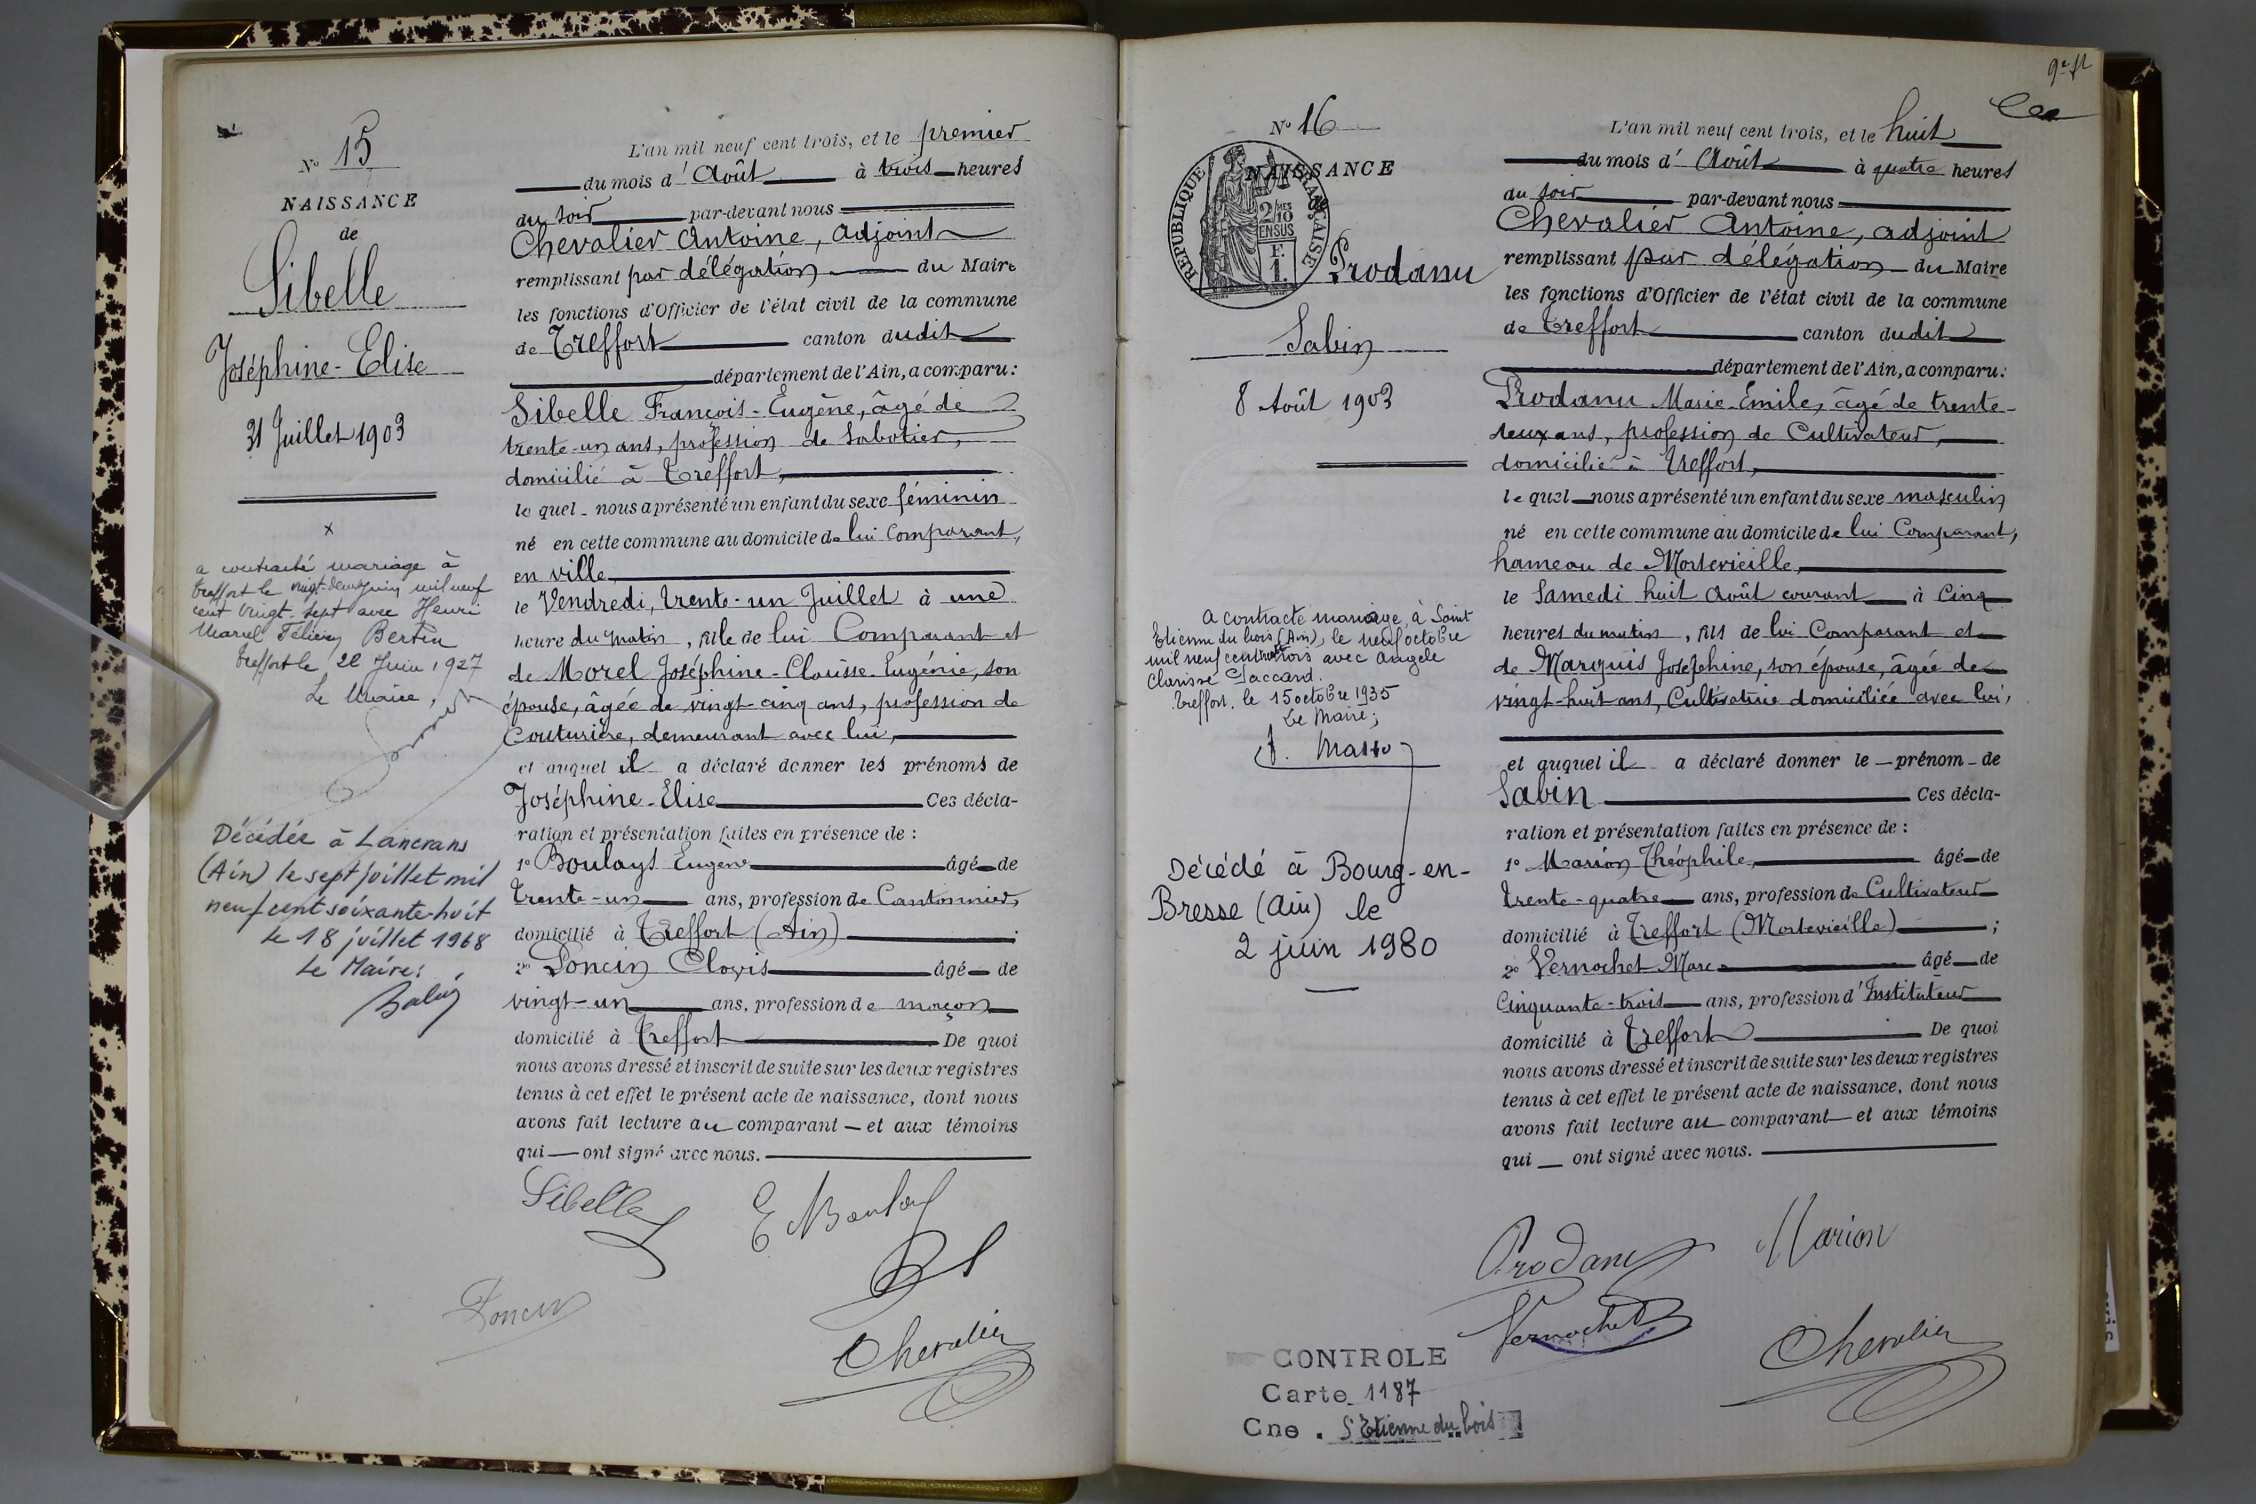 N° 15
NAISSANCE
de
Sibelle
Joséphine-Elise
31 Juillet 1903
x
a contracté mariage à
Treffort le vingt-deux Juin mil neuf
cent vingt-sept avec Henri
Marcel Bertin
Treffort le 22 Juin 1927
Le Maire,
Décédée à Lancrans
(Ain) le sept juillet mil
neuf cent soixante-huit
Le 18 juillet 1968
Le Maire:
L'an mil neuf cent trois, et le premier
du mois d'Août à trois heures
du soir par-devant nous
Chevalier Antoine, adjoint
remplissant par délégation du Maire
les fonctions d'Officier de l'état civil de la commune
de Treffort canton dudit
département de l'Ain, a comparu:
Sibelle François-Eugène, âgé de
trente-un ans, profession de Sabotier,
domicilié à Treffort,
lequel nous a présenté un enfant du sexe féminin
né en cette commune au domicile de lui Comparant,
en ville,
le Vendredi, trente-un Juillet à une
heure du matin, fille de lui Comparant et
de Morel Joséphine-Clarisse-Eugénie, son
épouse, âgée de vingt-cinq ans, profession de
Couturière, demeurant avec lui,
et auquel il a déclaré donner les prénoms de
Joséphine-Elise Ces décla-
ration et présentation faites en présence de:
1° Boulays Eugène âgé de
trente-un ans, profession de Cantonnier,
domicilié à Treffort (Ain);
2° Poncin Clovis âgé de
vingt-un ans, profession de maçon
domicilié à Treffort De quoi
nous avons dressé et inscrit de suite sur les deux registres
tenus à cet effet le présent acte de naissance, dont nous
avons fait lecture au comparant et aux témoins
qui ont signé avec nous.
Sibelle
E Boulay
Poncin
Chevalier
N° 16
NAISSANCE
RÉPUBLIQUE FRANÇAISE
2/10 MES
EN SUS
F.
1.
Prodanu
Sabin
8 Août 1903
A contracté mariage, à Saint
Etienne du bois (Ain), le neuf octobre
mil neuf cent avec Angèle
Clarisse Jaccard.
Treffort, le 15 octobre 1935
Le Maire;
Décédé à Bourg-en-
Bresse (Ain) le
2 juin 1980
CONTROLE
Carte 1187
Cne. St Etienne du bois
L'an mil neuf cent trois, et le huit
du mois d'Août à quatre heures
du soir par-devant nous
Chevalier Antoine, adjoint
remplissant par délégation du Maire
les fonctions d'Officier de l'état civil de la commune
de Treffort canton dudit
département de l'Ain, a comparu:
Prodanu Marie-Emile, âgé de trente-
deux ans, profession de Cultivateur,
domicilié à Treffort,
lequel nous a présenté un enfant du sexe masculin
né en cette commune au domicile de lui Comparant,
hameau de Mortevieille,
le Samedi huit Août courant à Cinq
heures du matin, fils de lui Comparant et
de Marquis Joséphine, son épouse, âgée de
vingt-huit ans, Cultivatrice domiciliée avec lui,
et auquel il a déclaré donner le prénom de
Sabin Ces décla-
ration et présentation faites en présence de:
1° Marion Théophile, âgé de
trente-quatre ans, profession de Cultivateur
domicilié à Treffort (Mortevieille);
2° Vernochet Marc âgé de
Cinquante-trois ans, profession d'Instituteur
domicilié à Treffort De quoi
nous avons dressé et inscrit de suite sur les deux registres
tenus à cet effet le présent acte de naissance, dont nous
avons fait lecture au comparant et aux témoins
qui ont signé avec nous.
Prodanu
Marion
Vernochet
Chevalier